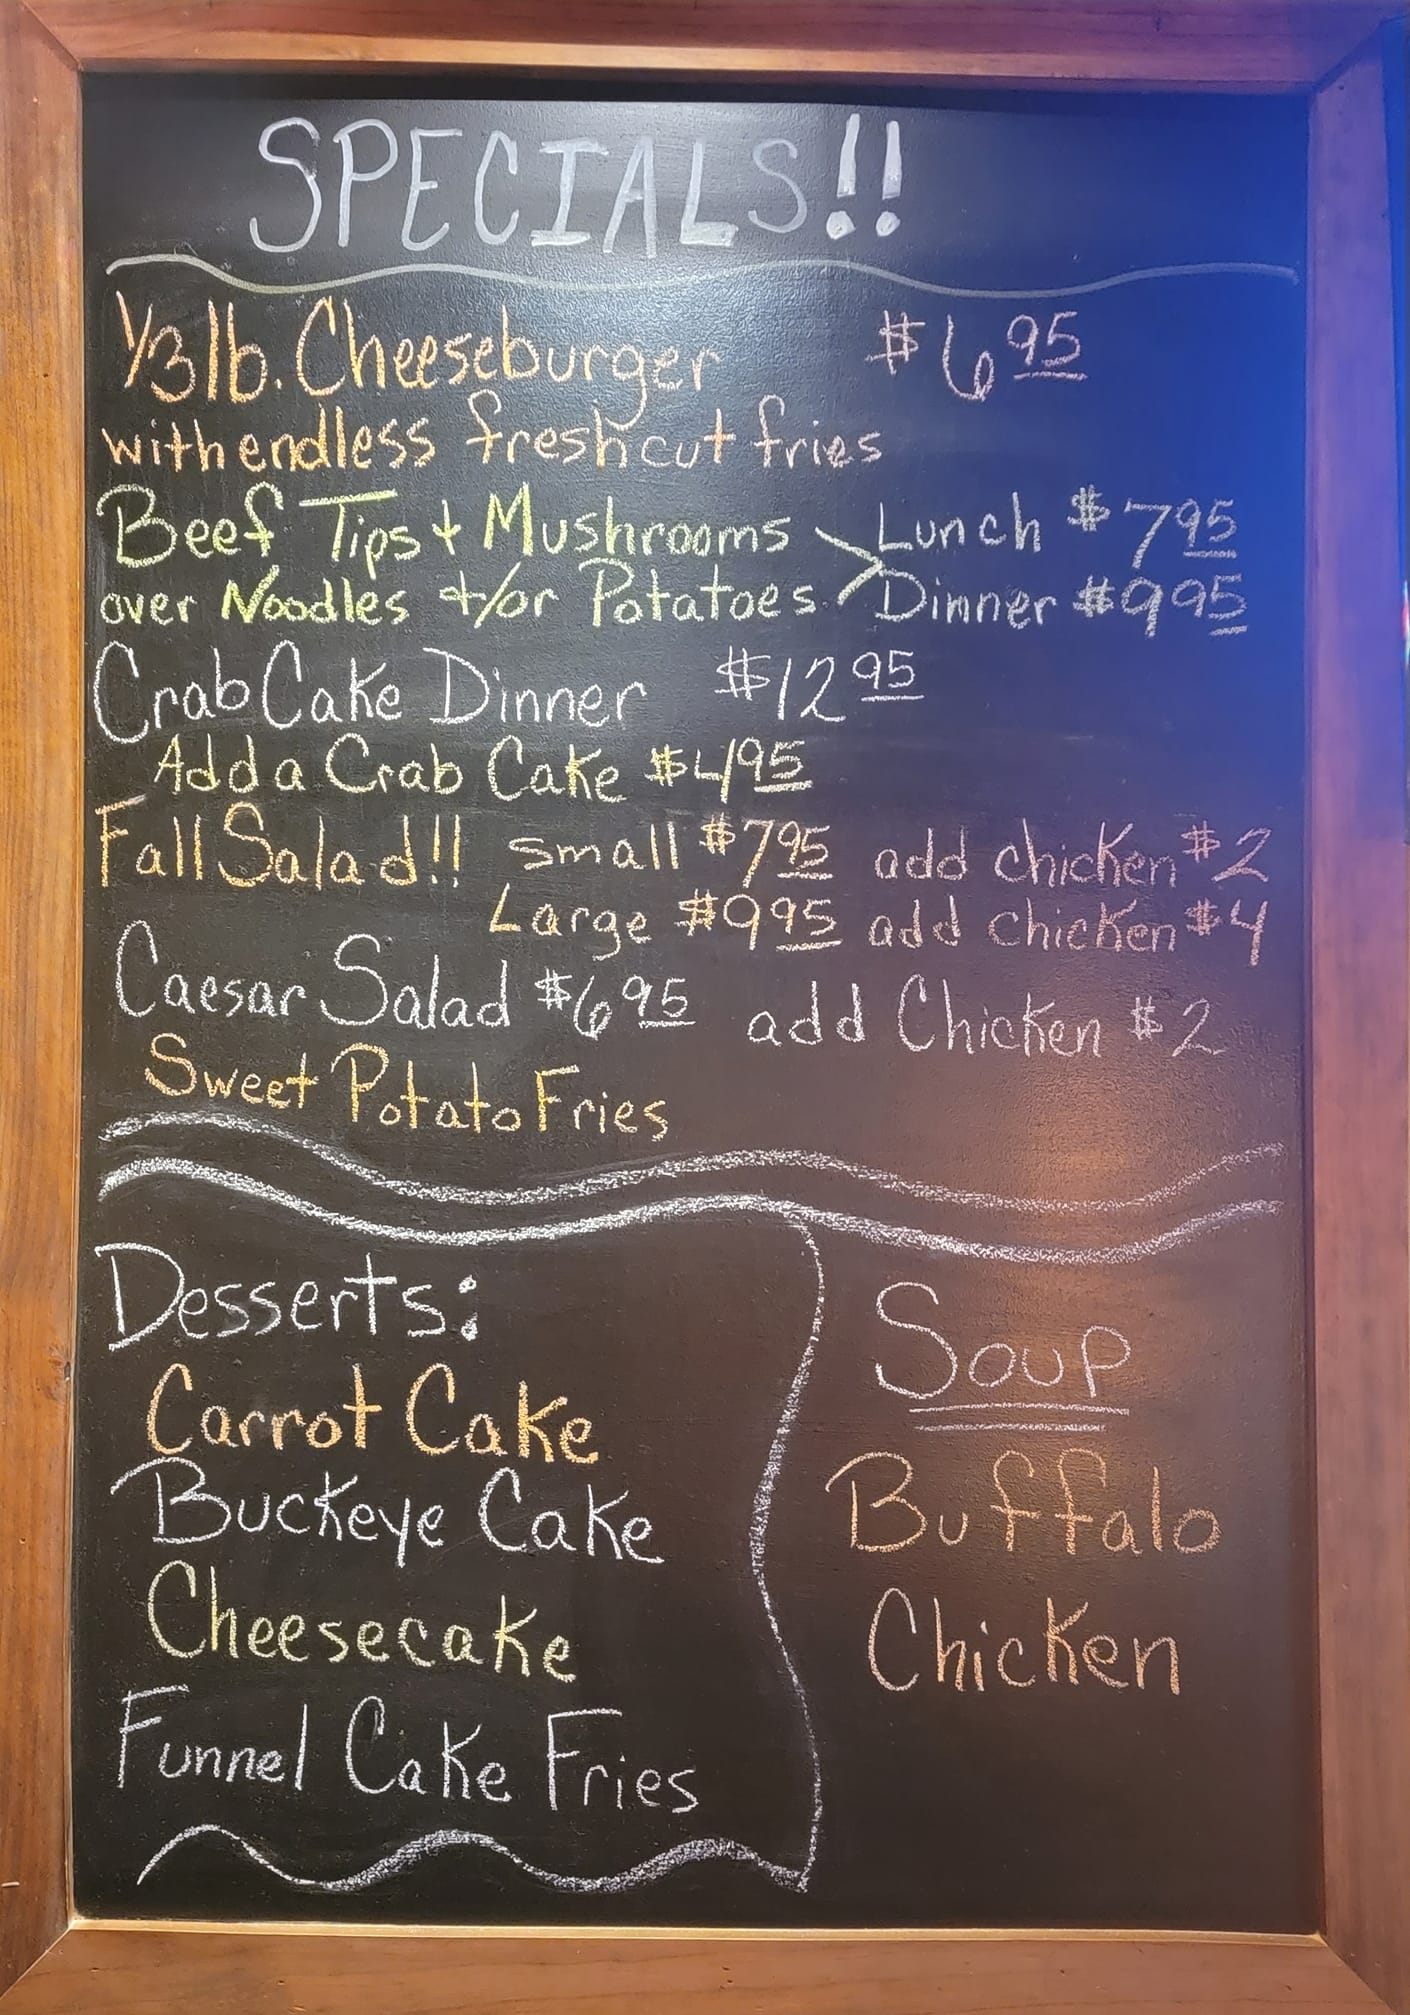 SPECIALS!!
1/3 lb. Cheeseburger $6 95
with endless fresh cut fries
Beef Tips + Mushrooms Lunch $7 95
over Noodles +/or Potatoes Dinner $9 95
Crab Cake Dinner $12 95
Add a Crab Cake $4 95
Fall Salad!! small $7 95 add chicken $2
Large $9 95 add chicken $4
Caesar Salad $6 95 add Chicken $2
Sweet Potato Fries
Desserts:
Carrot Cake
Buckeye Cake
Cheesecake
Funnel Cake Fries
Soup
Buffalo
Chicken